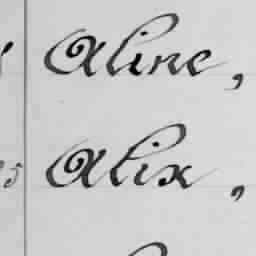 Aline,
Alix,